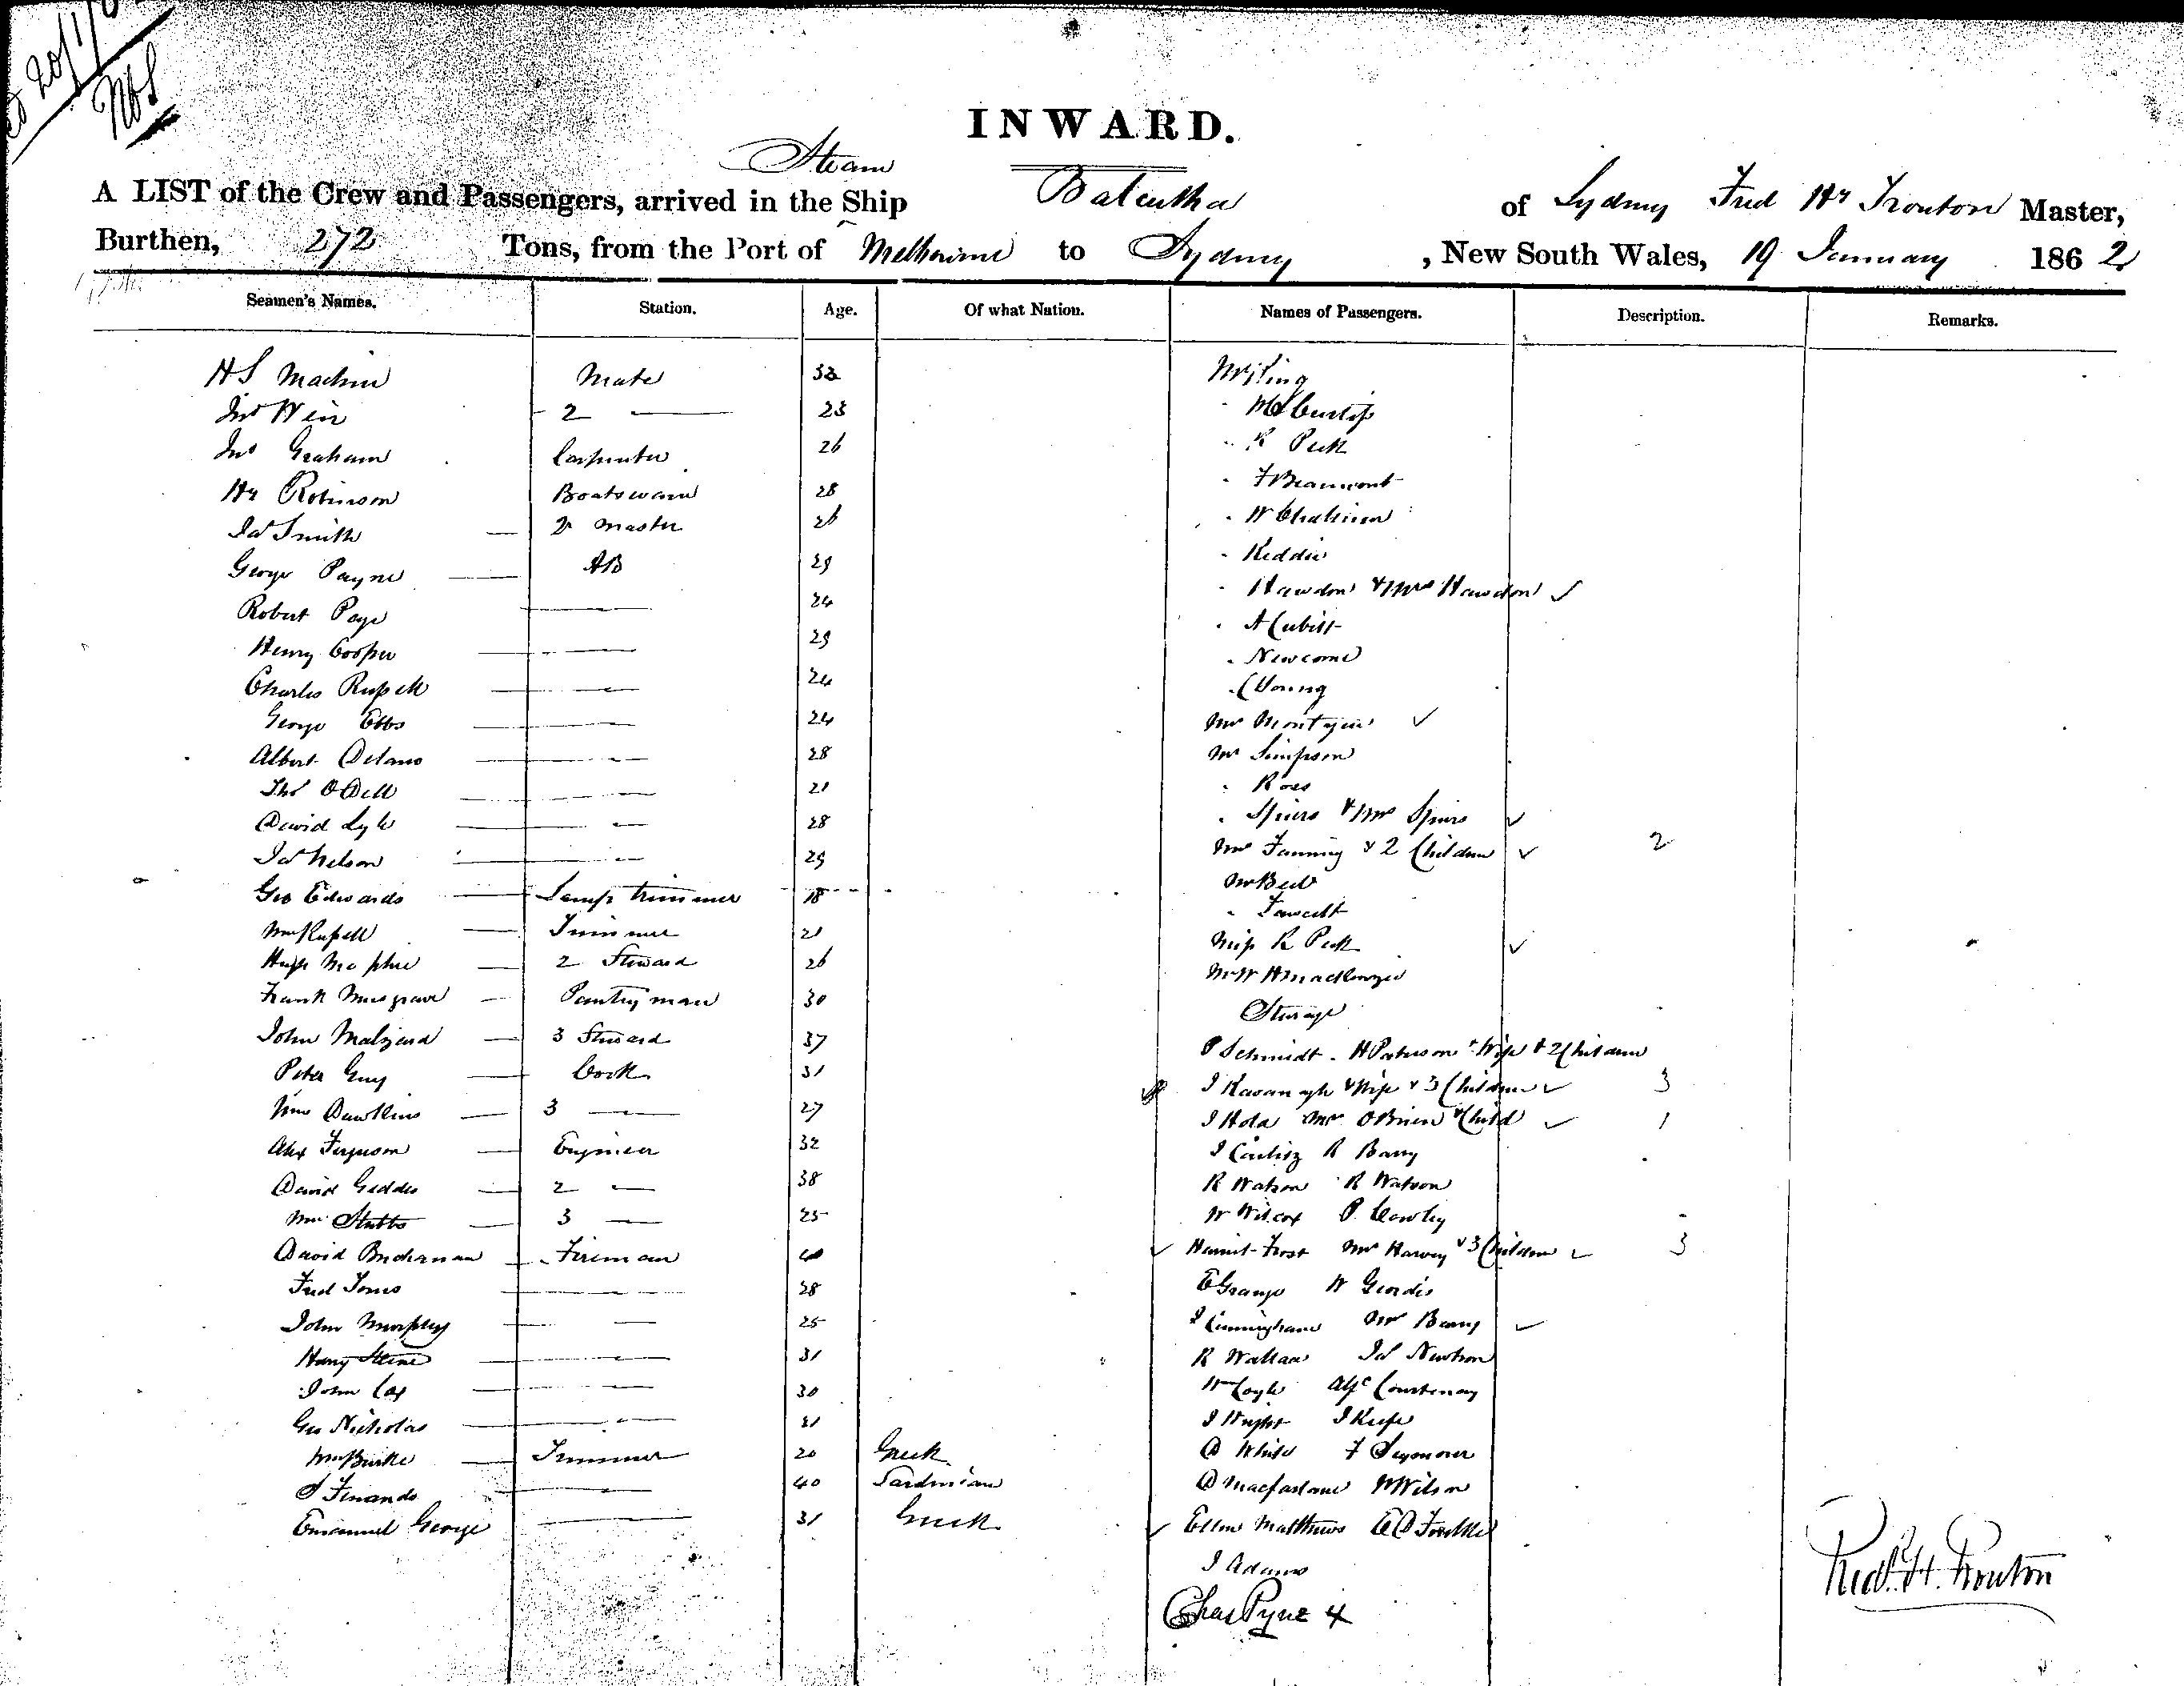 20/1/6
INWARD.
Steam
A LIST of the Crew and Passengers, arrived in the Ship Balcutha of Sydney Fred Hy Trouton Master,
Burthen, 272 Tons, from the Port of Melbourne to Sydney , New South Wales, 19 January 1862
Seamen's Names. Station. Age. Of what Nation. Names of Passengers. Description. Remarks.
H S Machin Mate 32
Jno Weir 2 — 23 " Curtis
Jno Graham Carpenter 26 " R Peck
Hy Robinson Boatswain 28 " F Beaumont
Jas Smith Qr Master 26 " W
George Payne AB 29 " Keddie
Robert Page — 24 " Hawdon & Mrs Hawdon ✓
Henry Cooper — 29 " A Cubitt
Charles Russell — 24 " Newcome
George Ebbs — 24 " C Young
Albert Delano — 28 Mrs ✓
Thos O Dell — 21 Mr Simpson
David Lyle — 28 " Ross
Jas Nelson — 29 " Spiers & Mrs Spiers ✓
Geo Edwards Lamp trimmer 18 Mrs Fanning & 2 Children ✓ 2
Wm Russell Trimmer 21 " Fawcett
Hugh McPhie 2 Steward 26 Miss R Peck ✓
Frank Musgrave Pantryman 30 Mr W H MacKenzie
John 3 Steward 37 Steerage
P Schmidt. H Paterson & Wife & 2 Children
Peter Guy Cook 31 J Kavanagh & Wife & 3 Children ✓ 3
Wm Dawkins 3 — 27 J Hola Mrs O Brien & Child ✓ 1
Alex Ferguson Engineer 32 R Barry
David Geddes 2 — 38 R Watson R Watson
Wm Stubbs 3 — 25 W Wilcox P Cowley
David Buchanan Fireman 40 ✓ Harriet Frost Mrs Harvey & 3 Children ✓ 3
Fred Jones — 28 E Grange W Geordis
John Murphy — 25 J Cunningham Mrs Barry ✓
Harry Steine — 31 R Wallace Jas Newton
John Cox — 30 Wm Coyle Alfd Courtenay
Geo Nicholas — 31 J Wright J Keefe
Wm Burke Trimmer 20 Greek D White F Seymour
J Finando — 40 Sardinian D Macfarlane W Wilson
Emanuel George — 31 Greek ✓ Ellen Matthews
J Adams
Chas Pyne 4
Fred. H. Trouton